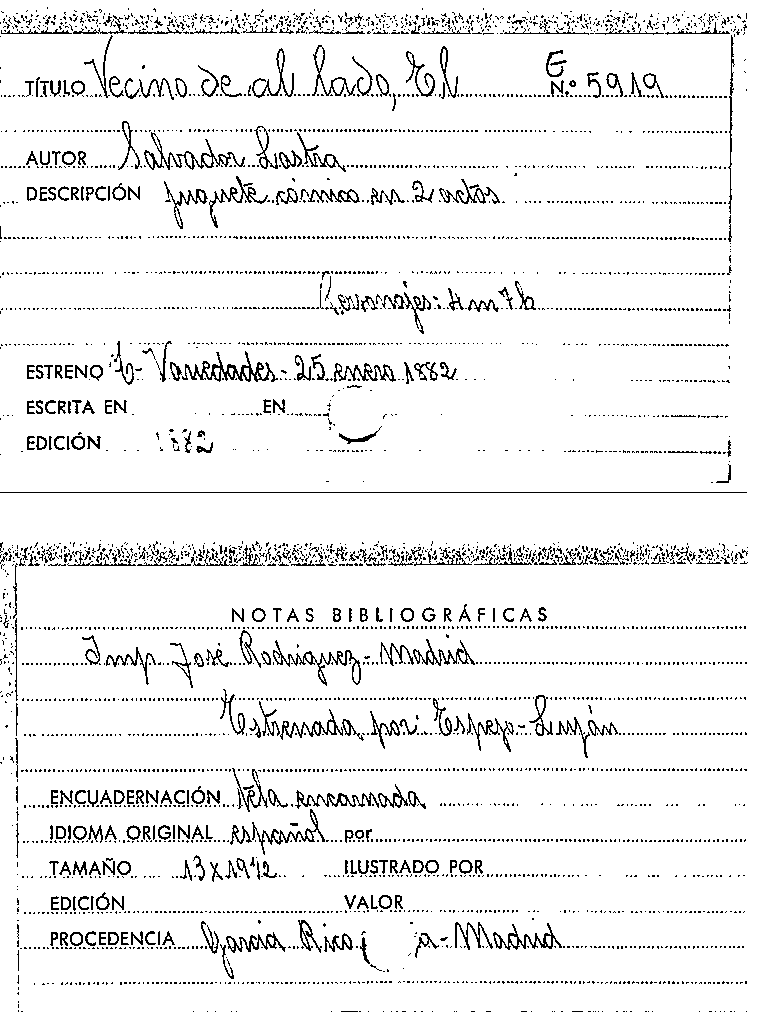 TÍTULO Vecino de al lado, El
E
N.º 5919
AUTOR Salvador Lastra
DESCRIPCIÓN juguete cómico en 2 actos
Personajes: 4 m 7 h
ESTRENO T- Variedades - 25 enero 1882
ESCRITA EN EN
EDICIÓN 1882
NOTAS BIBLIOGRÁFICAS
Imp José Rodríguez - Madrid
Estrenada por: Espejo - Luján
ENCUADERNACIÓN tela encarnada
IDIOMA ORIGINAL español por
TAMAÑO 13 x 19 1/2 ILUSTRADO POR
EDICIÓN VALOR
PROCEDENCIA García Rico - Madrid